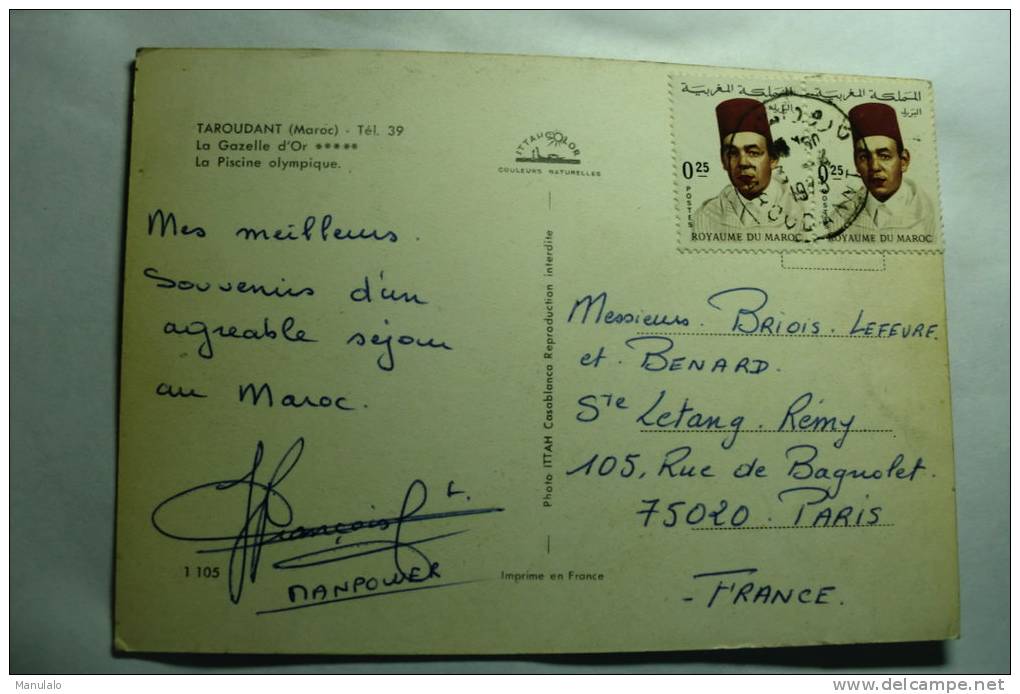 TAROUDANT (Maroc) - Tél. 39
La Gazelle d'Or *****
La Piscine olympique.
ITTAH COLOR
COULEURS NATURELLES
المملكة المغربية
البريد
0 25
POSTES
ROYAUME DU MAROC
المملكة المغربية
البريد
0 25
POSTES
ROYAUME DU MAROC
Mes meilleurs
souvenirs d'un
agreable séjour
au Maroc.
François L.
MANPOWER
1 105
Photo ITTAH Casablanca Reproduction interdite
Imprime en France
Messieurs. BRIOIS. LEFEVRE.
et. BENARD.
Ste Letang. Rémy.
105, Rue de Bagnolet.
75020. PARIS
- FRANCE.
Manulalo
delcampe.net